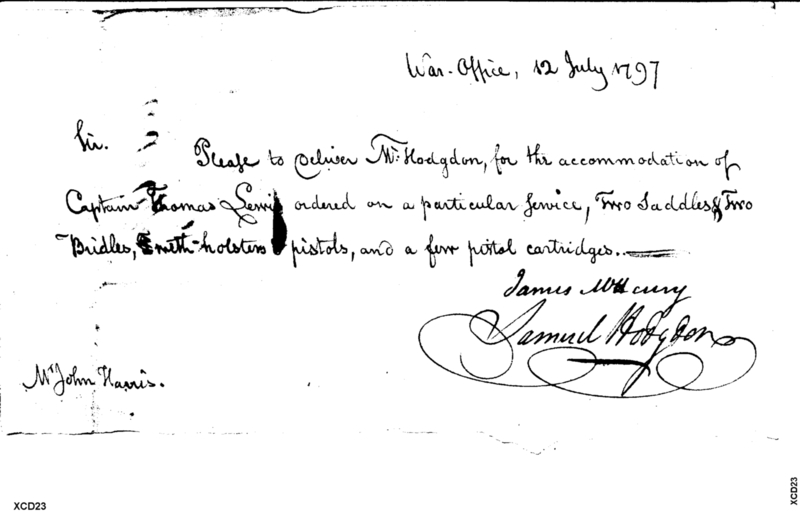 War-Office, 12 July 1797
Sir.
Please to Deliver Mr. Hodgdon, for the accommodation of
Captain Thomas Lewis ordered on a particular Service, Two Saddles & Two
Bridles, with holsters pistols, and a few pistol cartridges.
James McHenry
Samuel Hodgdon
Mr John Harris.
XCD23
XCD23